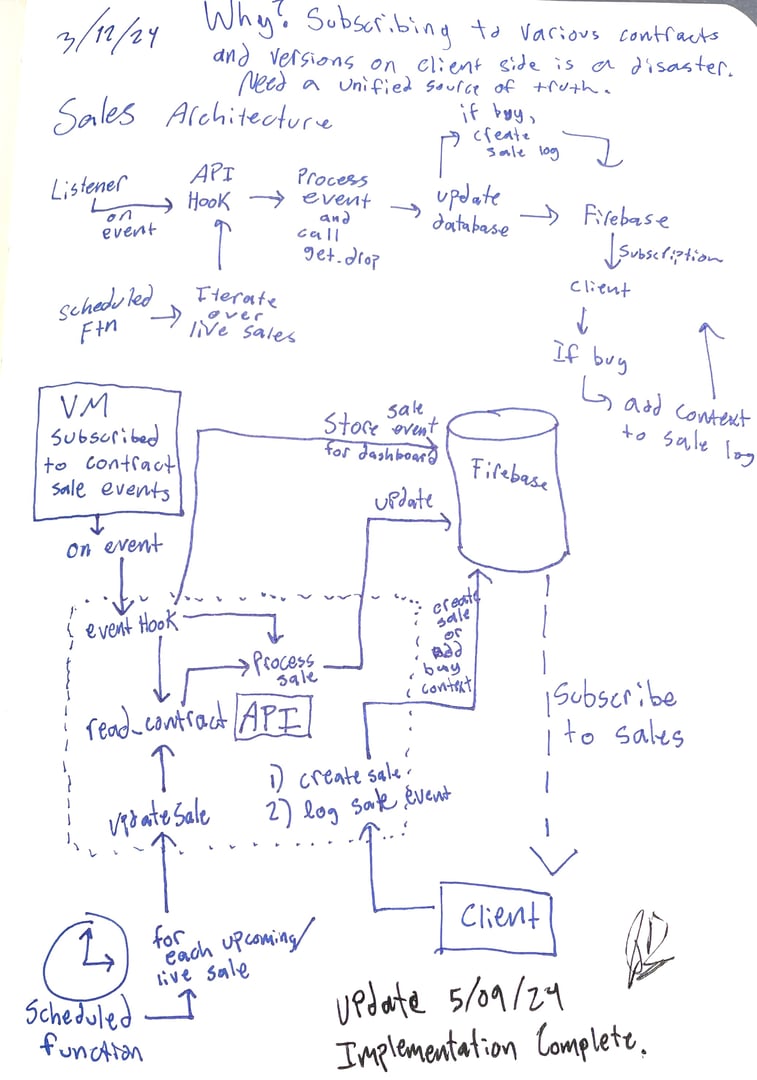 3/12/24
Why? Subscribing to various contracts
and versions on client side is a disaster.
Need a unified source of truth.
Sales Architecture
if buy,
create
sale log
Listener
on
event
API
Hook
Process
event
and
call
get_drop
update
database
Firebase
Subscription
client
If buy
add context
to sale log
Scheduled
Ftn
Iterate
over
live sales
VM
subscribed
to contract
sale events
on event
Store sale event
for dashboard
Firebase
update
event Hook
Process
sale
read_contract
API
create
sale
or
add
buy
context
Subscribe
to sales
1) create sale
2) log sale event
updateSale
Client
for
each upcoming/
live sale
Scheduled
function
Update 5/09/24
Implementation Complete.